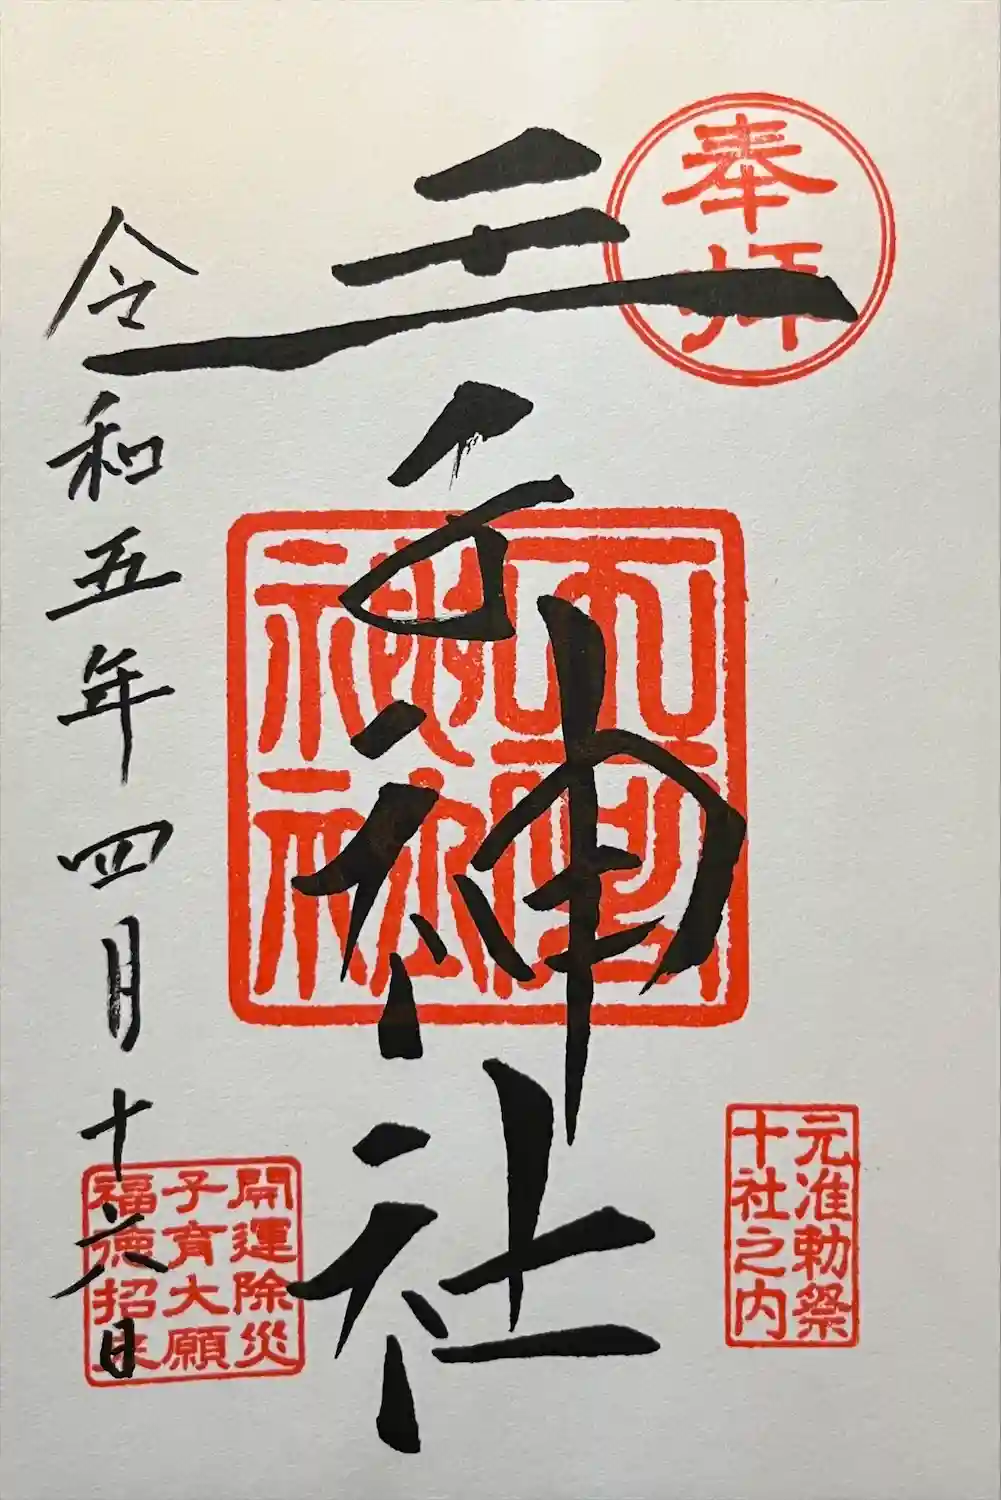 奉拝
王子神社
令和五年四月十六日
元准勅祭
十社之内
開運除災
子育大願
福徳招来